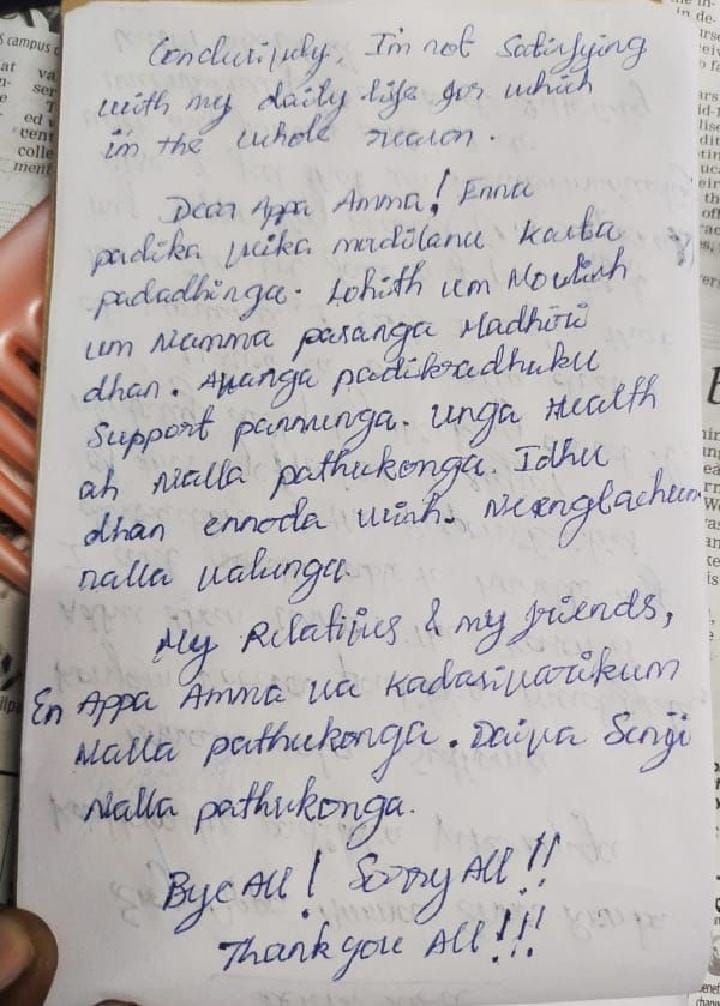 Conclusively, I'm not Satisfying
with my daily life for which
in the whole reason.
Dear Appa Amma! Enna
padika veika mudilanu kavba
padadhinga. Lohith um Moulish
um Namma pasanga Madhiri
dhan. Avanga padikradhuku
Support pannunga. Unga Health
ah Nalla pathukonga. Idhu
dhan ennoda wish. Neenglachum
nalla valunga.
My Relatives & my friends,
En Appa Amma va kadasivarikum
Nalla pathukonga. Daiva Senji
Nalla pathukonga.
Bye All! Sorry All!!
Thank you All!!!